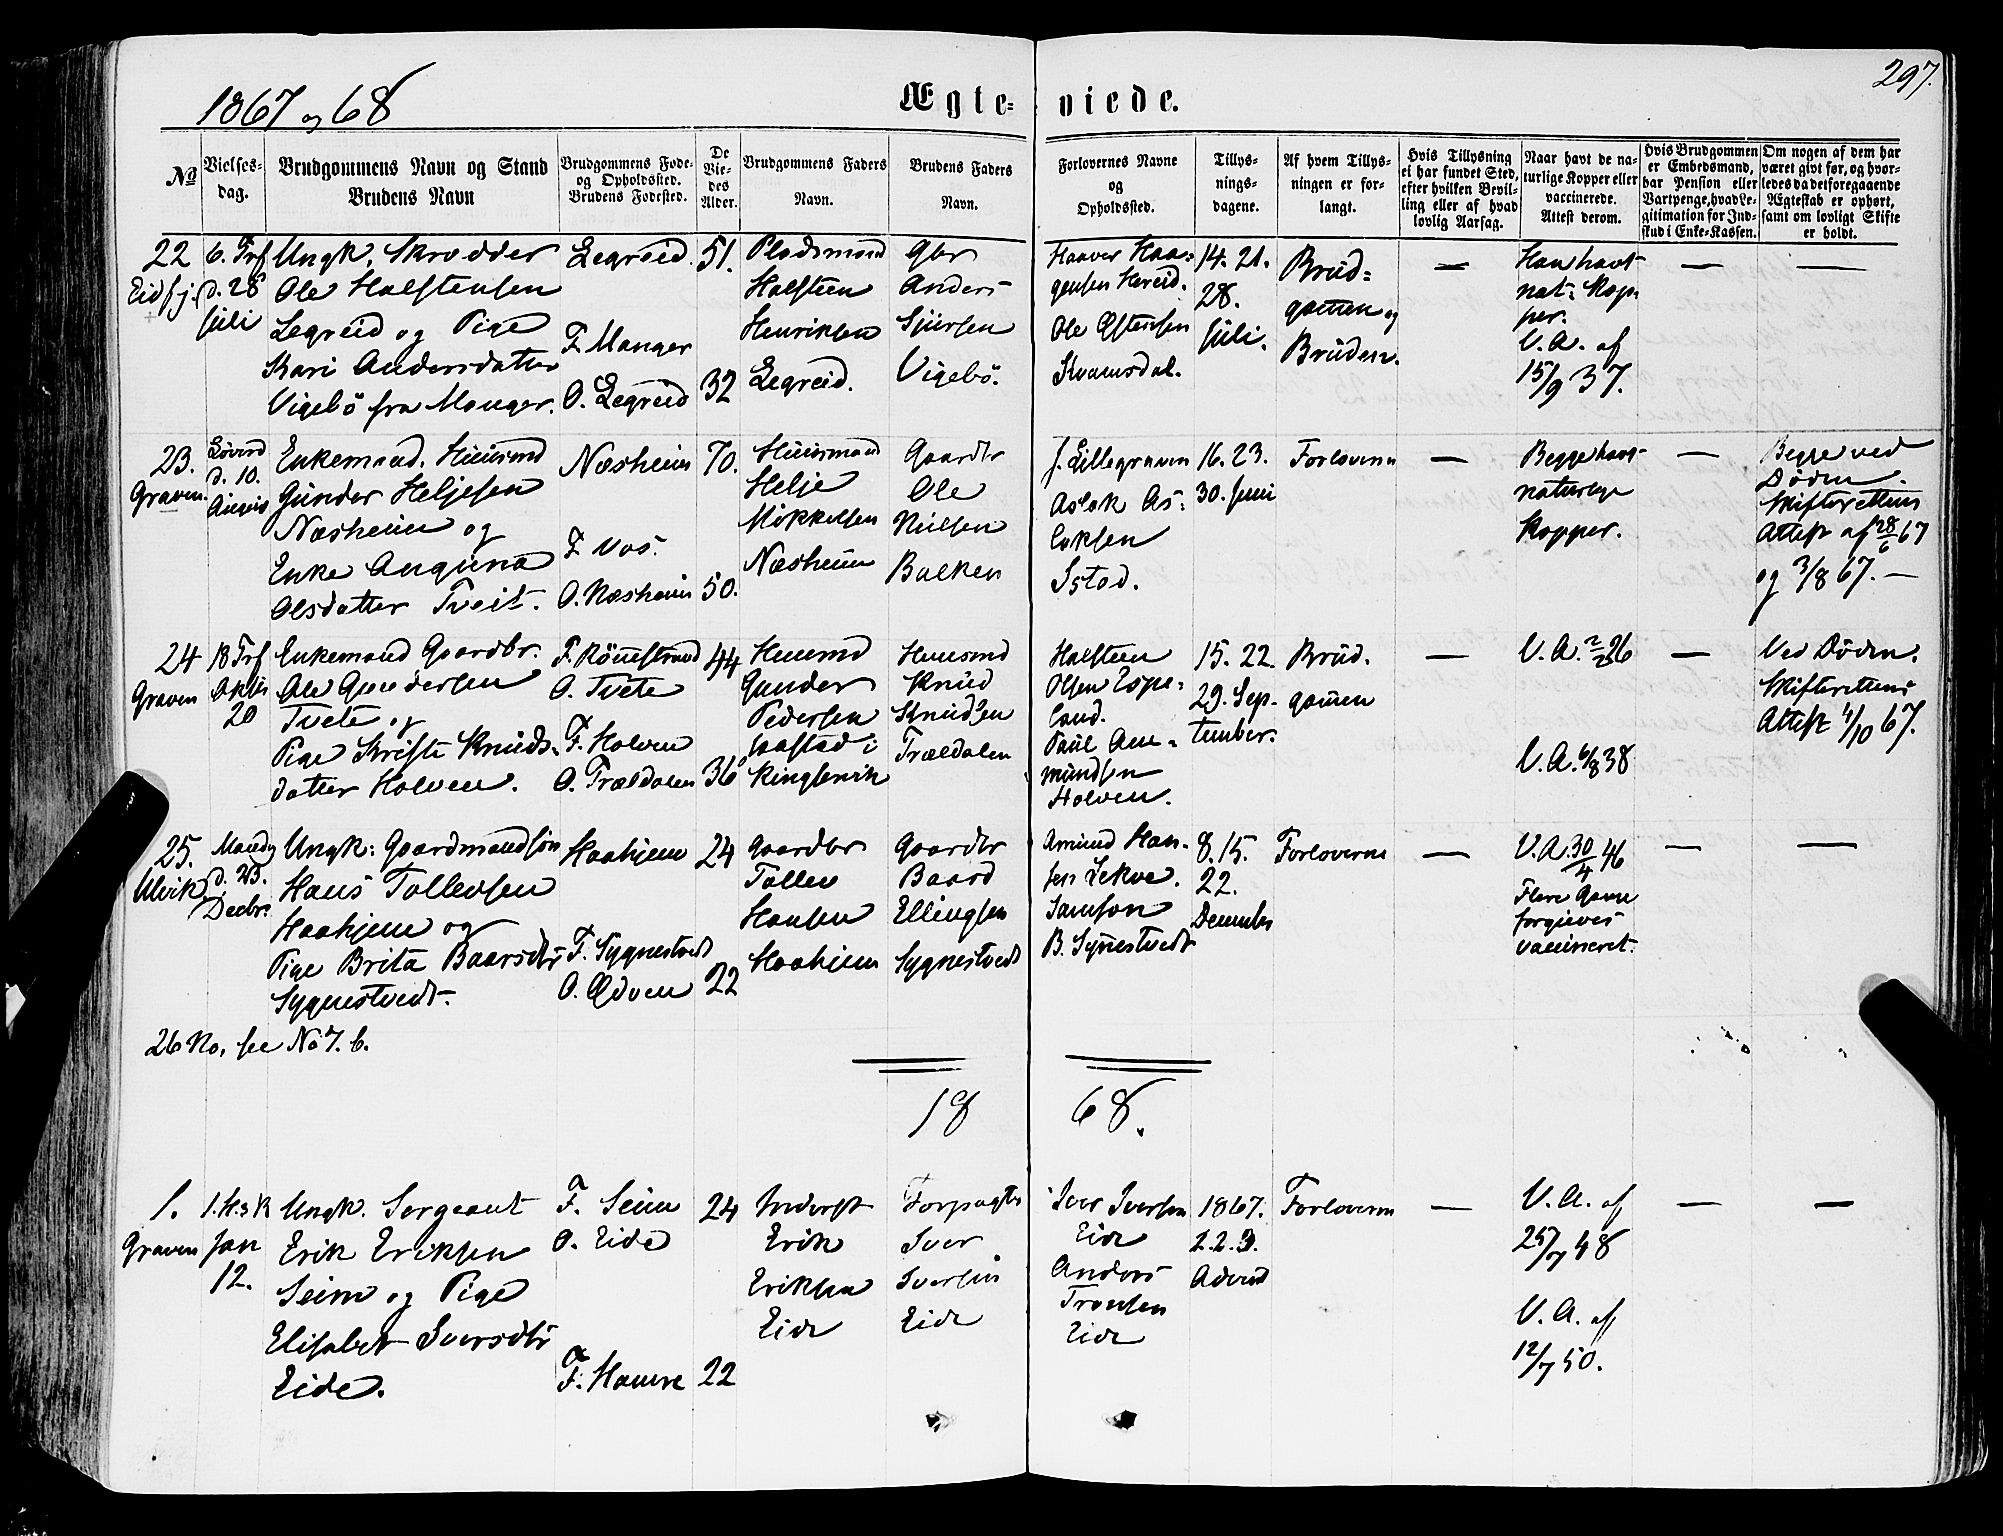 1867 og 68
Ægte-viede.
297.
No
Vielses-dag.
Brudgommens Navn og Stand
Brudens Navn
Brudgommens Føde- og Opholdssted.
Brudens Fødested.
De Viedes Alder.
Brudgommens Faders Navn.
Brudens Faders Navn.
Forlovernes Navne og Opholdssted.
Tillysningsdagene.
Af hvem Tillysningen er forlangt.
Hvis Tillysning ei har fundet Sted, efter hvilken Bevilling eller af hvad lovlig Aarsag.
Naar havt de naturlige Kopper eller vaccinerede. Attest derom.
Hvis Brudgommen er Embedsmand, har Pension eller Vartpenge, hvad Legitimation for Indskud i Enke-Kassen.
Om nogen af dem har været givt før, og hvorledes da det foregaaende Ægteskab er ophørt, samt om lovligt Skifte er holdt.
22
Eidfj.
6. Trf
d. 28
juli
Ungk. Skrædder
Ole Halstensen
Legreid og Pige
Kari Andersdatter
Vigebö fra Manger.
Legreid.
F. Manger
O. Legreid
51.
32
Pladsmand
Halsteen
Henriksen
Legreid.
Gbr
Anders
Sjursen
Vigebö.
Haaver Haa-
gensen Hereid.
Ole Østensen
Kvamsdal.
14. 21.
28.
juli.
Brud-
gommen og
Bruden.
—
Han havt
nat: Kop-
per.
V. A. af
15/9 37.
—
—
23.
Graven.
Löverd
d. 10.
August
Enkemand. Huusmd
Gunder Heljesen
Næsheim og
Enke Anguna
Olsdatter Tveit.
Næsheim
F. Vos.
O. Næsheim
70.
50.
Huusmand
Helje
Mikkelsen
Næsheim
Gaardbr
Ole
Nielsen
Balken
J. Lillegraven
Aslak As-
laksen
Istad.
16. 23.
30. Juni
Forloverne
—
Begge havt
naturlige
Kopper.
—
Begge ved
Døden.
Skifterettens
Attest af 28/6 67
og 3/8 67. —
24
Graven
18 Trf
Oktbr
20
Enkemand Gaardbr.
Ole Gundersen
Tvete og
Pige Kristi Knuds-
datter Holven.
F. Rönnestrand
O. Tvete
F. Holven
O. Trældalen
44
36
Huusmd
Gunder
Pedersen
i
Kingservik
Huusmd
Knud
Knudsen
Trældalen
Halsteen
Olsen Espe-
land.
Paul Am-
mundsen
Holven.
15. 22.
29. Sep-
tember.
Brud-
gommen
—
V. A. 2/2 26
V. A. 6/8 38
—
Ved Døden.
Skifterettens
Attest 4/10 67.
25.
Ulvik.
Mandg
d. 23.
Decbr.
Ungk: Gaardmandssøn
Hans Tollevsen
Haahjem og
Pige Brita Baarsdtr
Sygnestvedt.
Haahjem
F. Sygnestvedt
O. Ædven
24
22
Gaardbr
Tollev
Hansen
Haahjem
Gaardbr
Baard
Ellingsen
Sygnestvedt
Amund Han-
sen Lekve.
Samson
B. Synnestvedt
8. 15.
22.
December
Forloverne
—
V. A. 30/4 46
Flere Gange
forgjeves
vaccineret.
—
—
26 No. see No 7. b.
18 68.
1.
Graven
1. S. e. K
Jan
12.
Ungk. Sergeant
Erik Eriksen
Seim og Pige
Elisabet Iversdtr
Eide.
F. Seim
O. Eide
F. Hamre
24
22
Inderst
Erik
Eriksen
Eide
Forpagter
Iver
Iversen
Eide
Iver Iversen
Eide
Anders
Tronsen
Eide
1867.
1. 2. 3.
Advend
Forloverne
—
V. A. af
25/7 48
V. A. af
12/7 50.
—
—